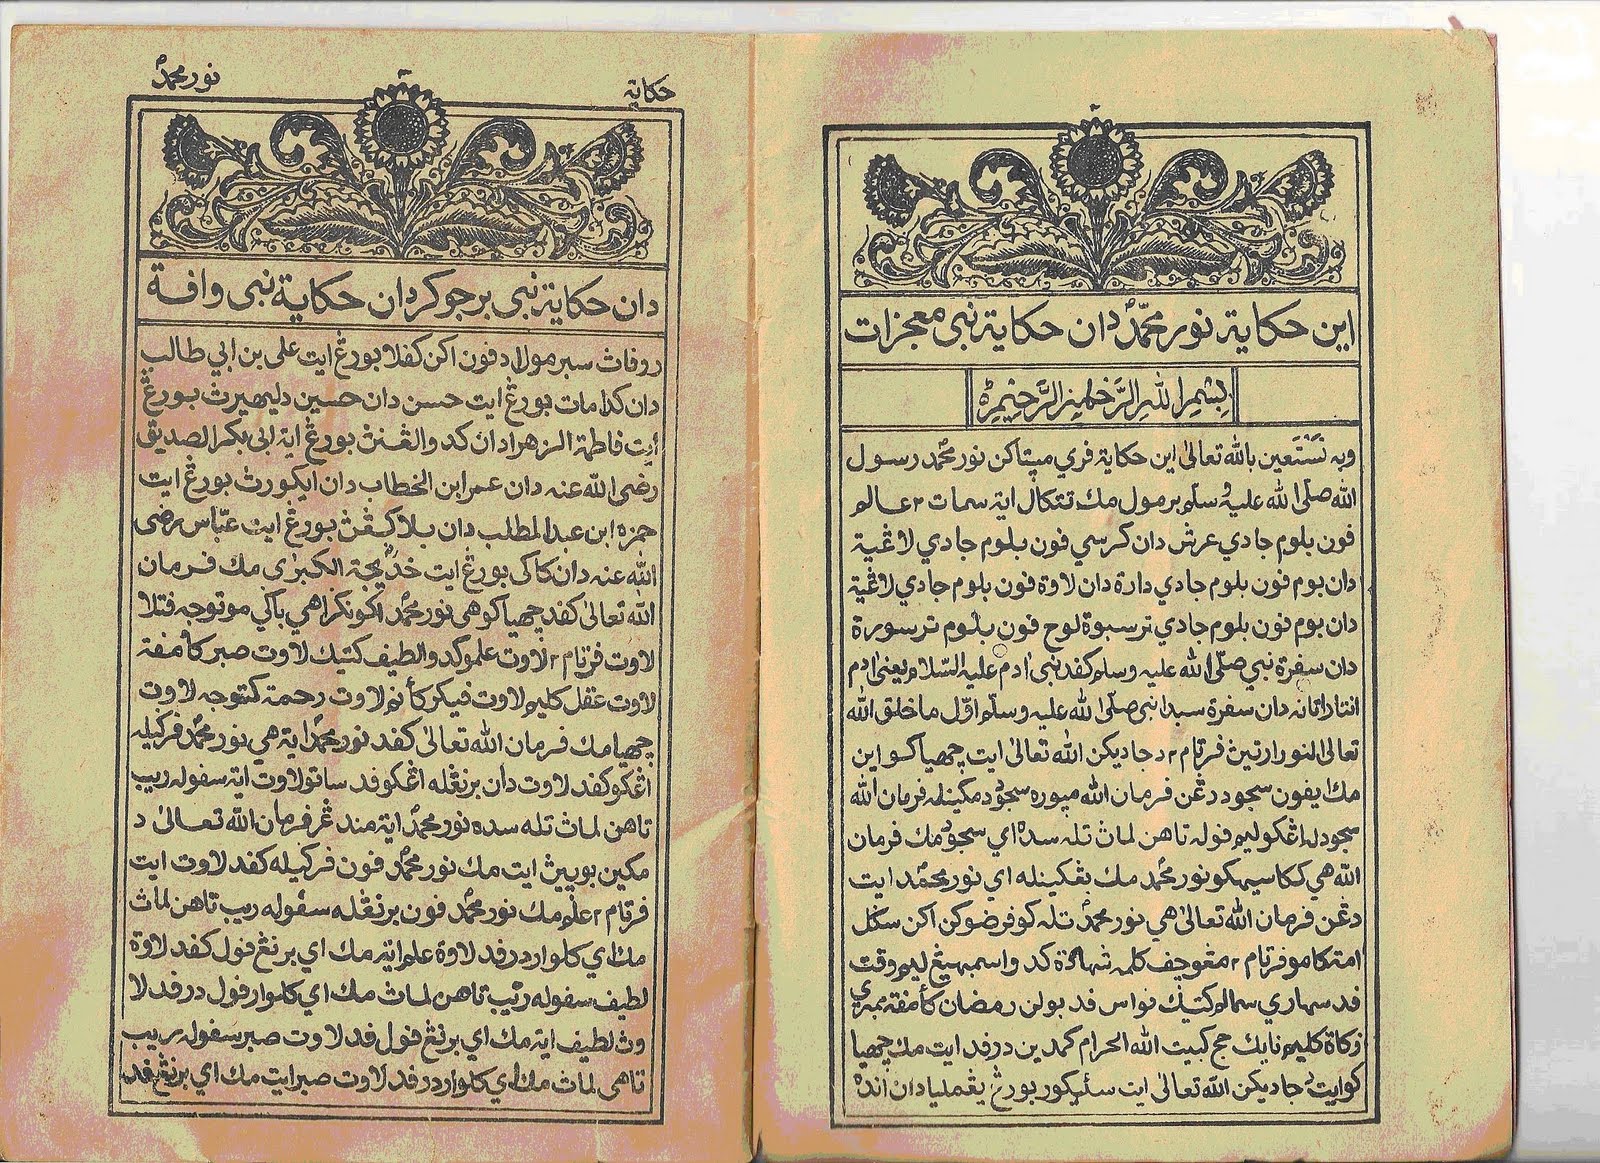 اين حكاية نور محمّد دان حكاية نبي معجزات
بسم الله الرحمن الرحيم
وبه نَسْتَعين بالله تعالىٰ اين حكاية فري مپتاكن نور محمد رسول
الله صلّى الله عليه وسلّم برمول مك تتكال اية سمات٢ عالم
فون بلوم جادي عرش دان كرسي فون بلوم جادي لاڠية
دان بوم فون بلوم جادي دارة دان لاوة فون بلوم جادي لاڠية
دان بوم فون بلوم جادي ترسبوة لوح فون بلوم ترسورة
دان سفرة نبي صلّى الله عليه وسلم كفد نبي ادم عليه السّلام يعني ادم
انتارانه دان سفرة سبدا نبي صلّى الله عليه وسلّم اوّل ما خلق الله
تعالى النور ارتيڽ فرتام٢ دجاديكن الله تعالىٰ ايت چهيا كو اين
مك ايفون سجود دڠن فرمان الله ميوره سجود دمكينله فرمان الله
سجودله اڠكو ليم فوله تاهن لماڽ تله سده اي سجود مك فرمان
الله هي ككاسيهكو نور محمد مك بڠكيتله اي نور محمد ايت
دڠن فرمان الله تعالىٰ هي نور محمد تله كو فرضوكن اكن سكل
امتكامو فرتام٢ مڠوچف كلمه شهادة كدوا سمبهيڠ ليم وقت
فد سهاري سمالم كتيݢ فواس فد بولن رمضان كأمفة ممبري
زكاة كليم نايك حج كبيت الله الحرام كمدين درفد ايت مك چهيا
كو ايت جاديكن الله تعالىٰ ايت سئيكور بورڠ يڠ مليا دان انده
حكاية
نور محمد
دان حكاية نبي برچوكر دان حكاية نبي وافة
روفاڽ سبرمولا دفون اكن كفلا بورڠ ايت علي بن ابي طالب
دان كدا مات بورڠ ايت حسن دان حسين دليهيرڽ بورڠ
ايت فاطمة الزهرا دان كدوا لڠنڽ بورڠ اية ابي بكر الصديق
رضى الله عنه دان عمر ابن الخطاب دان ايكورڽ بورڠ ايت
حمزه ابن عبد المطلب دان بلاكڠڽ بورڠ ايت عبّاس رضى
الله عنه دان كاكي بورڠ ايت خديجة الكبرٰى مك فرمان
الله تعالىٰ كفد چهيا كو هي نور محمد اكو نكراهي باكي مو توجه فتلا
لاوت فرتام٢ لاوت علم كدوا لطيف كتيݢ لاوت صبر كأمفة
لاوت عقل كليم لاوت فيكر كأنم لاوت رحمة كتوجه لاوت
چهيا مك فرمان الله تعالىٰ كفد نور محمد اية هي نور محمد فركيله
اڠكو كفد لاوت دان برنڠله اڠكو فد ساتو لاوت اية سفوله ريب
تاهن لماڽ تله سده نور محمد اية مندڠر فرمان الله تعالىٰ د
مكين بوييڽ ايت مك نور محمد فون فركيله كفد لاوت ايت
فرتام٢ علم مك نور محمد فون برنڠله سفوله ريب تاهن لماڽ
مك اي كلوار درفد لاوة علم اية مك اي برنڠ فول كفد لاوة
لطيف سفوله ريب تاهن لماڽ مك اي كلوار فول درفد لا
وت لطيف اية مك اي برنڠ فول فد لاوت صبر سفوله ريب
تاهن لماڽ مك اي كلوار درفد لاوت صبر ايت مك اي برنڠ فد